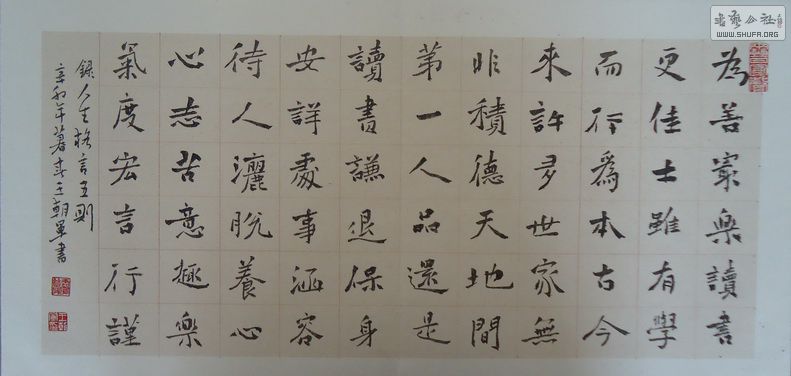 為善㝡樂讀書
更佳士雖有學
而行爲本古今
來許多世家無
非積德天地間
第一人品還是
讀書謙退保身
安詳處事涵容
待人灑脫養心
心志苦意趣樂
氣度宏言行謹
錄人生格言五則
辛卯年暮春王朝書
書藝公社
WWW.SHUFA.ORG